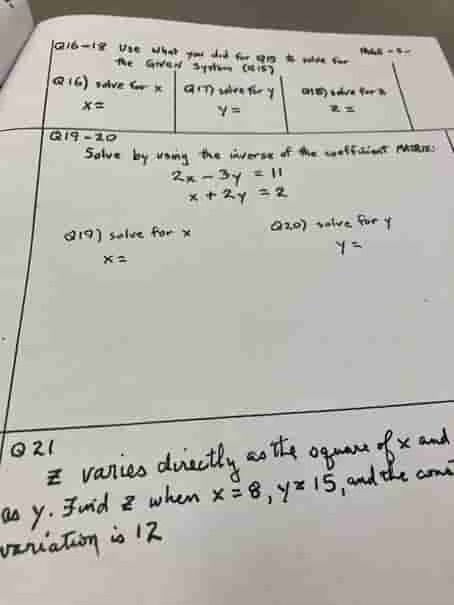 Q16-18 Use what you did for Q15 to solve for
the Given System (Q15)
Q16) solve for x
x=
Q17) solve for y
y=
Q18) solve for z
z=
Q19-20
Solve by using the inverse of the coefficient MATRIX:
2x - 3y = 11
x + 2y = 2
Q19) solve for x
x=
Q20) solve for y
y=
Q21
Z varies directly as the square of x and
as y. Find z when x = 8, y = 15, and the
variation is 12